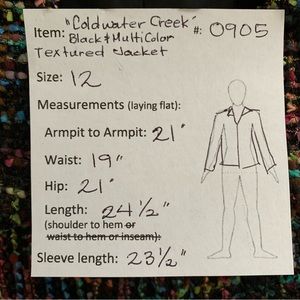 Item: "Coldwater Creek" #: 0905
Black & MultiColor
Textured Jacket
Size: 12
Measurements (laying flat):
Armpit to Armpit: 21"
Waist: 19"
Hip: 21"
Length: 24 1/2"
(shoulder to hem or
waist to hem or inseam):
Sleeve length: 23 1/2"